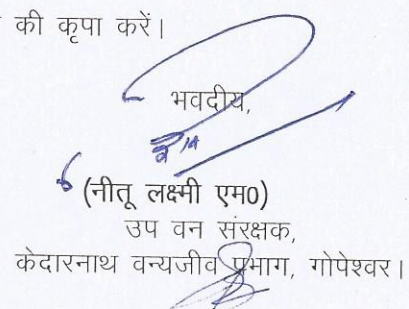 की कृपा करें।
भवदीय,
(नीतू लक्ष्मी एम0)
उप वन संरक्षक,
केदारनाथ वन्यजीव प्रभाग, गोपेश्वर।